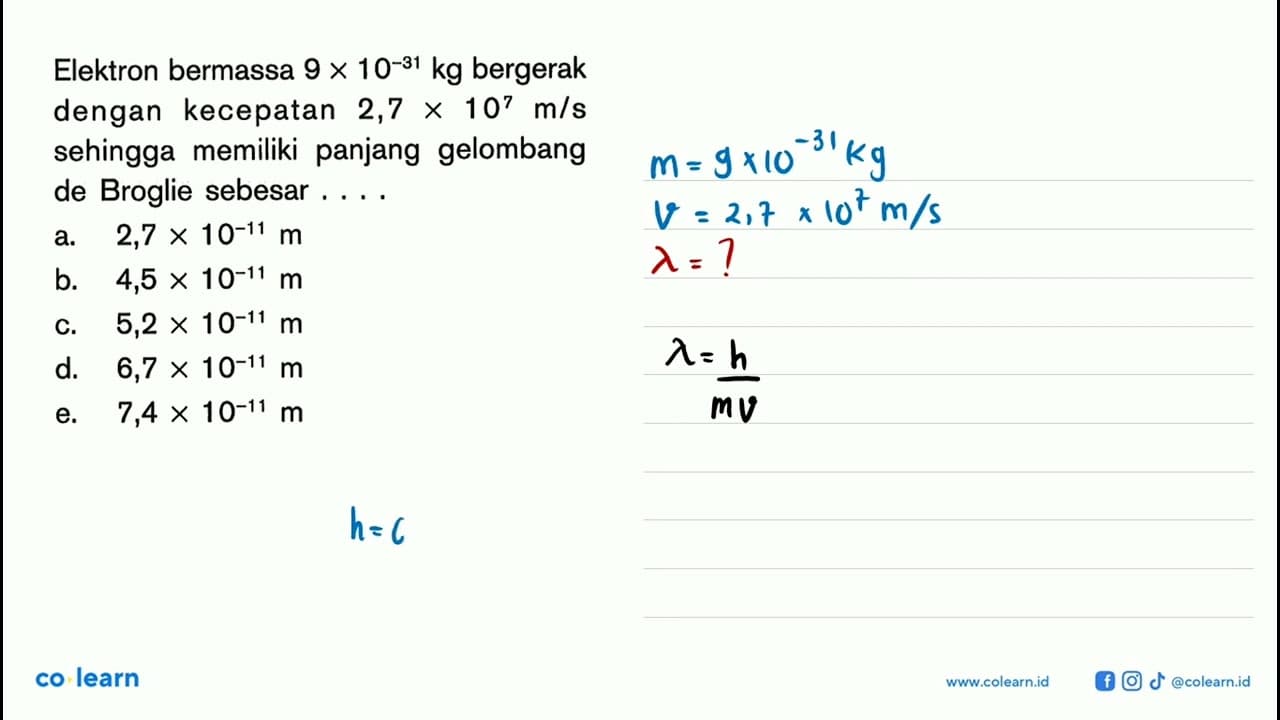 Elektron bermassa 9 × 10⁻³¹ kg bergerak
dengan kecepatan 2,7 × 10⁷ m/s
sehingga memiliki panjang gelombang
de Broglie sebesar . . . .
a. 2,7 × 10⁻¹¹ m
b. 4,5 × 10⁻¹¹ m
c. 5,2 × 10⁻¹¹ m
d. 6,7 × 10⁻¹¹ m
e. 7,4 × 10⁻¹¹ m
h = 6
m = 9 × 10⁻³¹ kg
v = 2,7 × 10⁷ m/s
λ = ?
λ = h
mv
co·learn
www.colearn.id
@colearn.id